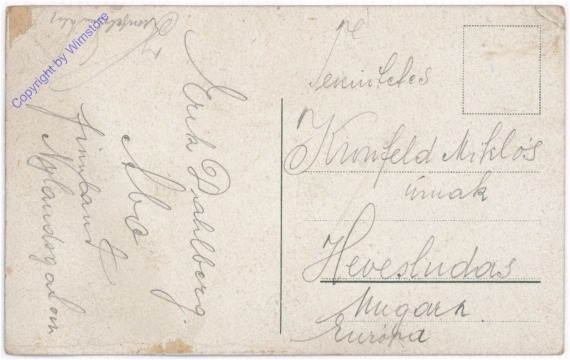 Copyright by Wimstore
Erik Dahlberg.
Abo
Finnland
Tekintetes
Kronfeld Miklós
úrnak
Hevesludas
Ungarn.
Európa